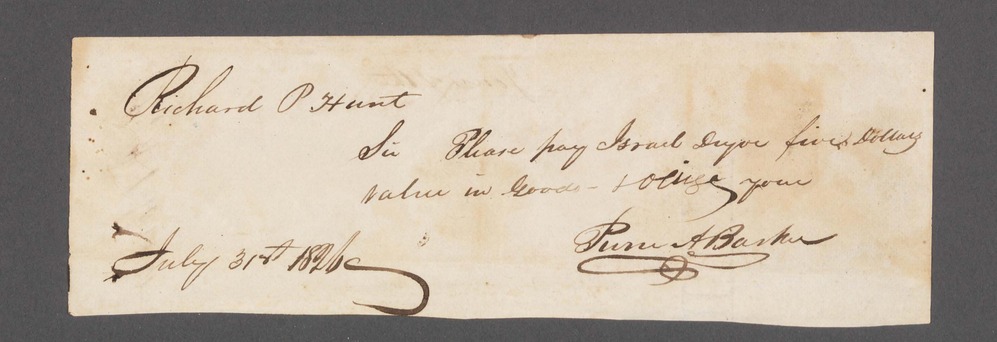 Richard P Hunt
Sir Please pay Israel five Dollars
value in Goods - & Oblige your
A Barker
July 31st 1826